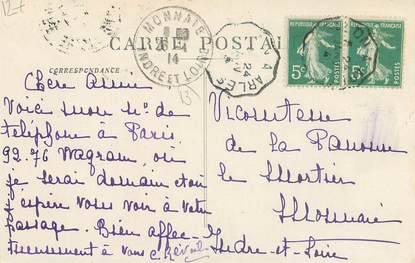 127
MONNAIE
14
INDRE ET LOIRE
CARTE POSTALE
A ARLES
24
REPUBLIQUE FRANÇAISE
5c
5c
POSTES
CORRESPONDANCE
B
Chère Amie
Voici mon No. de
téléphone à Paris
92.76 Wagram, où
je serai demain et où
j'espère vous voir à votre
passage. Bien affec-
tueusement à vous C.
Vicomtesse
de la Panouse
le Mortier
Monnaie
Indre-et-Loire